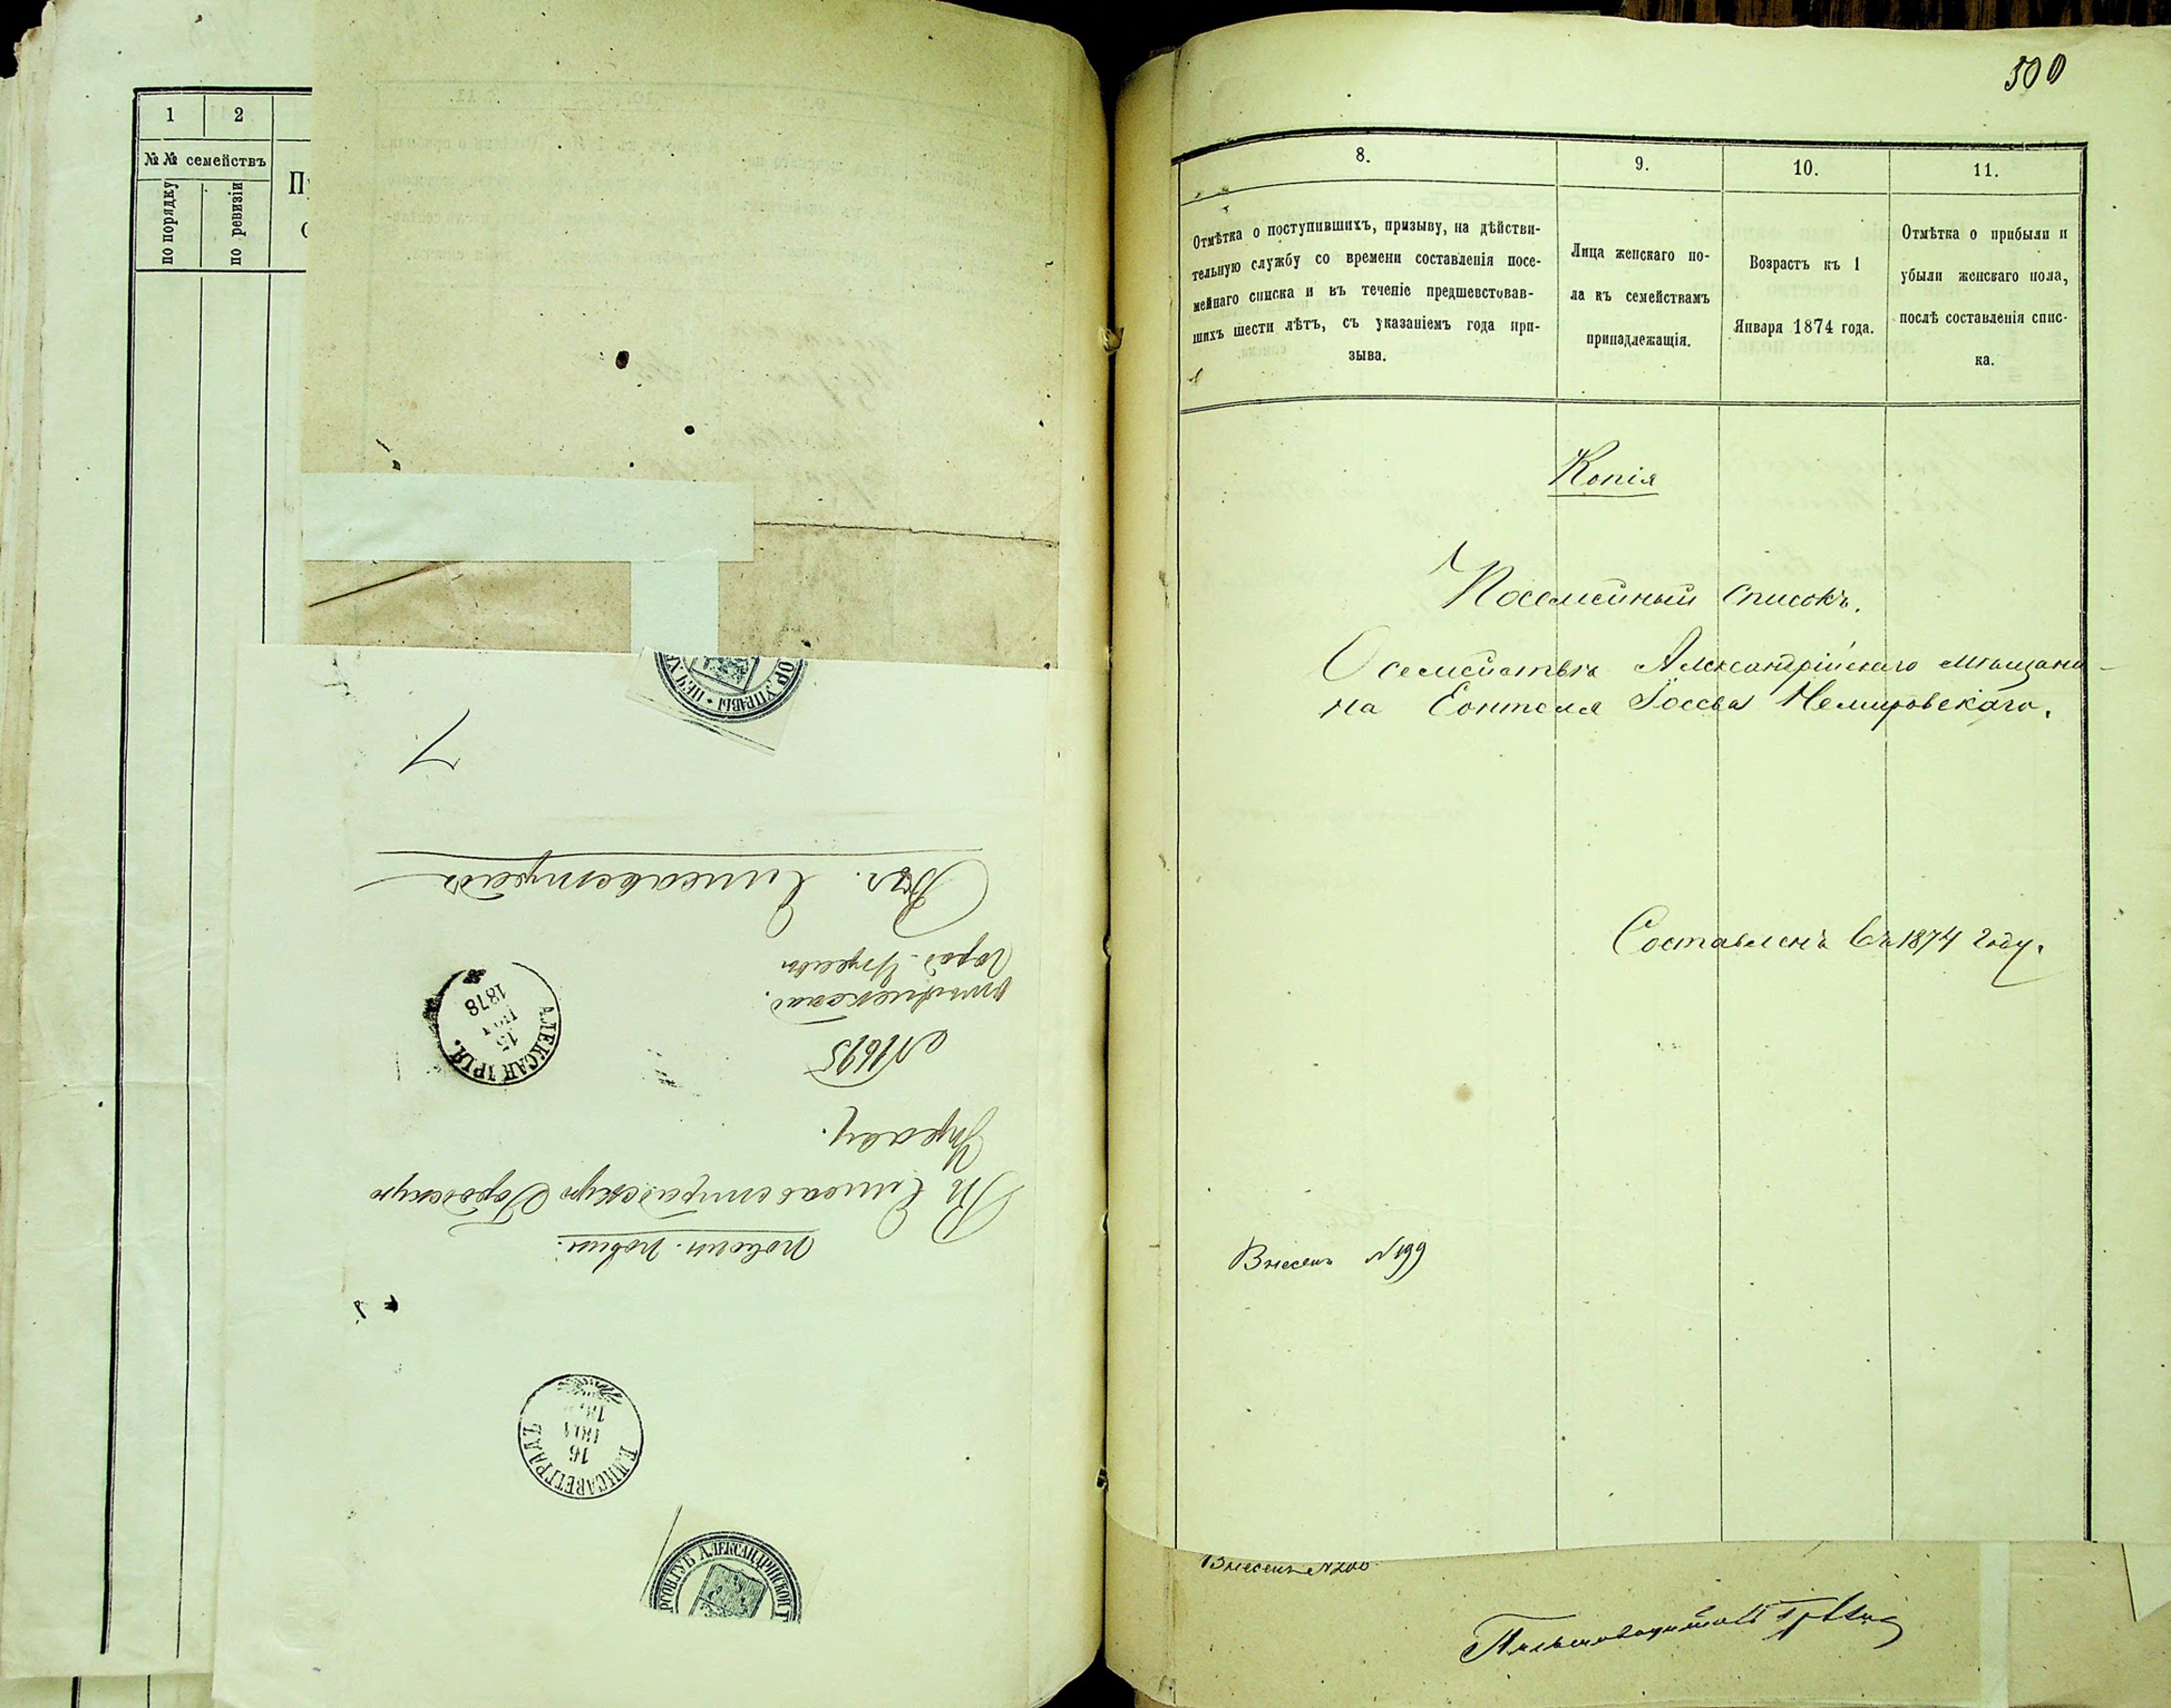 1
2
№ № семействъ
по порядку
по ревизіи
ОР. УПРАВЫ • ПЕЧ
Вл. Елисаветградъ
отъ Александ.
Город. Управы
№1695
АЛЕКСАНДРІЯ.
15
1878
Въ Елисаветградскую Городскую
Управу.
по воин. повин.
ЕЛИСАВЕТГРАДЪ
16
РСОН.ГУБ АЛЕКСАНДРІЙСКОЙ Г
500
8.
9.
10.
11.
Отмѣтка о поступившихъ, призыву, на дѣйстви-
тельную службу со времени составленія посе-
мейнаго списка и въ теченіе предшевствовав-
шихъ шести лѣтъ, съ указаніемъ года при-
зыва.
Лица женскаго по-
ла къ семействамъ
принадлежащія.
Возрастъ къ 1
Января 1874 года.
Отмѣтка о прибыли и
убыли женскаго пола,
послѣ составленія спис-
ка.
Копія
Посемейный Списокъ.
О семействѣ Александрійскаго мѣщани-
на Іосева Немировскаго.
Составленъ въ 1874 году.
Внесенъ №199
Внесенъ №200